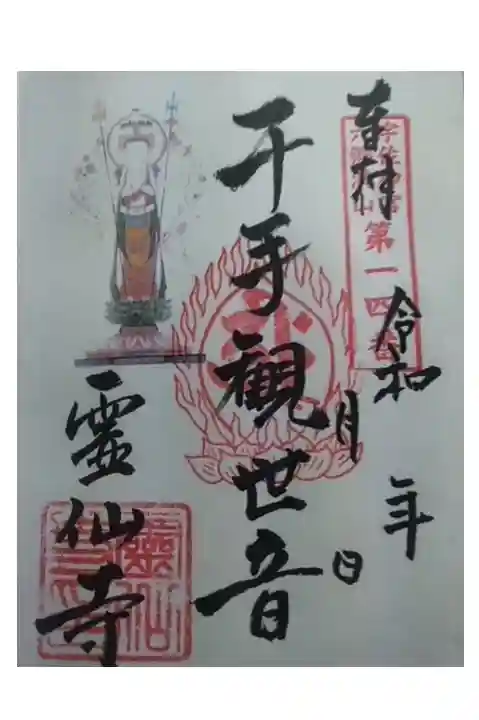 奉拝
第一四番
令和 年
月 日
千手観世音
霊仙寺